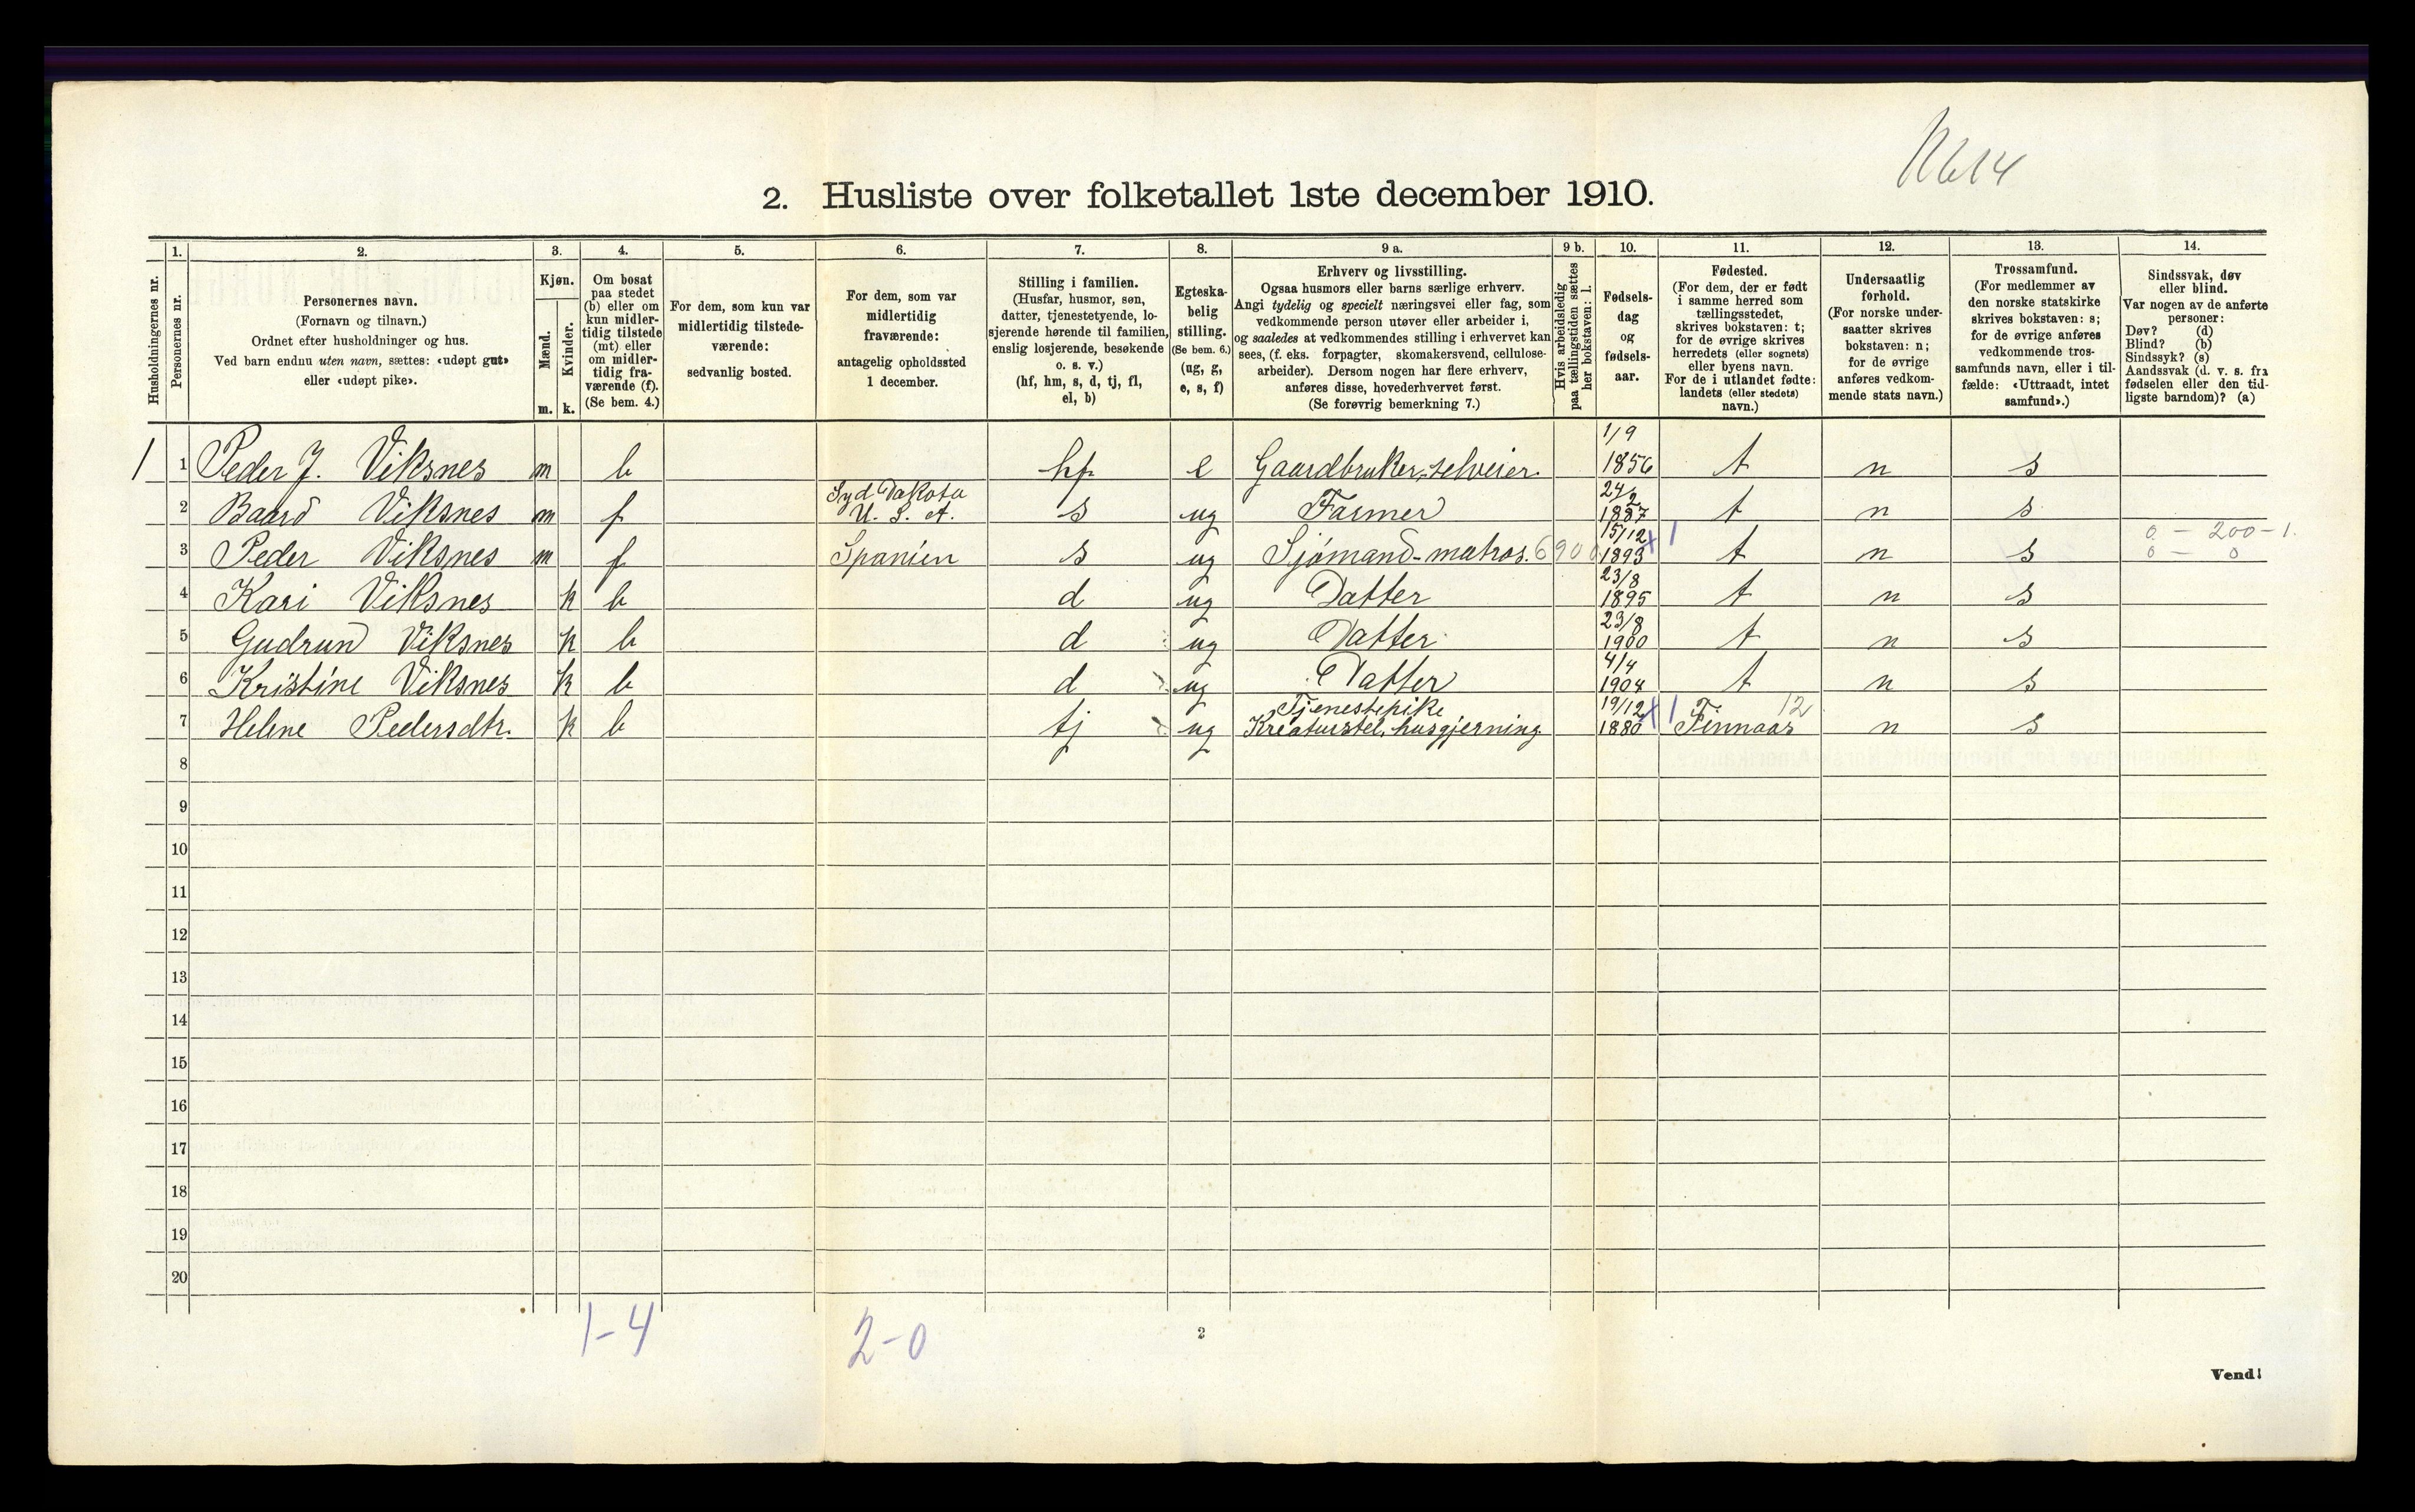 N614
2. Husliste over folketallet 1ste december 1910.
1. 2. 3. 4. 5. 6. 7. 8. 9 a. 9 b. 10. 11. 12. 13. 14.
Husholdningernes nr.
Personernes nr.
Personernes navn.
(Fornavn og tilnavn.)
Ordnet efter husholdninger og hus.
Ved barn endnu uten navn, sættes: «udøpt gut»
eller «udøpt pike».
Kjøn.
Mænd.
Kvinder.
m. k.
Om bosat
paa stedet
(b) eller om
kun midler-
tidig tilstede
(mt) eller
om midler-
tidig fra-
værende (f).
(Se bem. 4.)
For dem, som kun var
midlertidig tilstede-
værende:
sedvanlig bosted.
For dem, som var
midlertidig
fraværende:
antagelig opholdssted
1 december.
Stilling i familien.
(Husfar, husmor, søn,
datter, tjenestetyende, lo-
sjerende hørende til familien,
enslig losjerende, besøkende
o. s. v.)
(hf, hm, s, d, tj, fl,
el, b)
Egteska-
belig
stilling.
(Se bem. 6.)
(ug, g,
e, s, f)
Erhverv og livsstilling.
Ogsaa husmors eller barns særlige erhverv.
Angi tydelig og specielt næringsvei eller fag, som
vedkommende person utøver eller arbeider i,
og saaledes at vedkommendes stilling i erhvervet kan
sees, (f. eks. forpagter, skomakersvend, cellulose-
arbeider). Dersom nogen har flere erhverv,
anføres disse, hovederhvervet først.
(Se forøvrig bemerkning 7.)
Hvis arbeidsledig
paa tællingstiden sættes
her bokstaven: l.
Fødsels-
dag
og
fødsels-
aar.
Fødested.
(For dem, der er født
i samme herred som
tællingsstedet,
skrives bokstaven: t;
for de øvrige skrives
herredets (eller sognets)
eller byens navn.
For de i utlandet fødte:
landets (eller stedets)
navn.)
Undersaatlig
forhold.
(For norske under-
saatter skrives
bokstaven: n;
for de øvrige
anføres vedkom-
mende stats navn.)
Trossamfund.
(For medlemmer av
den norske statskirke
skrives bokstaven: s;
for de øvrige anføres
vedkommende tros-
samfunds navn, eller i til-
fælde: «Uttraadt, intet
samfund».)
Sindssvak, døv
eller blind.
Var nogen av de anførte
personer:
Døv? (d)
Blind? (b)
Sindssyk? (s)
Aandssvak (d. v. s. fra
fødselen eller den tid-
ligste barndom)? (a)
1 1 Peder J. Viksnes m b hf e Gaardbruker, selveier. 1/9 1856 t n s
2 Baard Viksnes m f Syd Dakota U. S. A. s ug Farmer 24/2 1887 t n s
3 Peder Viksnes m f Spanien s ug Sjømand-matros. 6900 15/12 1893 x 1 t n s 0 - 200-1.
0 - 0
4 Kari Viksnes k b d ug Datter 23/8 1895 t n s
5 Gudrun Viksnes k b d ug Datter 23/8 1900 t n s
6 Kristine Viksnes k b d ug Datter 4/4 1904 t n s
7 Helene Pedersdtr. k b tj ug Tjenestepike Kreaturstel, husgjerning 19/12 1880 x 1 Finnaas 12 n s
8
9
10
11
12
13
14
15
16
17
18
19
20
1-4 2-0
2
Vend!